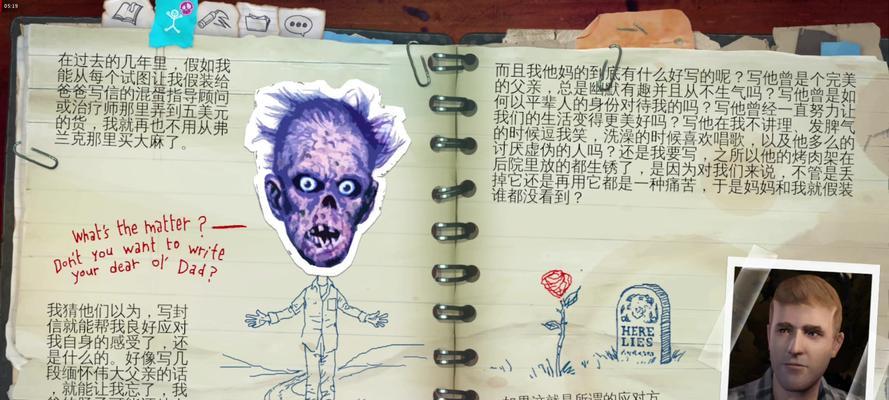 05:19
在过去的几年里，假如我
能从每个试图让我假装给
爸爸写信的混蛋指导顾问
或治疗师那里弄到五美元
的货，我就再也不用从弗
兰克那里买大麻了。
What's the matter?
Don't you want to write
your dear ol' Dad?
我猜他们以为，写封
信就能帮我良好应对
我自身的感受了，还
是什么的。好像写几
段缅怀伟大父亲的话
，就能让我忘了，我
而且我他妈的到底有什么好写的呢？写他曾是个完美
的父亲，总是幽默有趣并且从不生气吗？写他曾是如
何以平辈人的身份对待我的吗？写他曾经一直努力让
我们的生活变得更美好吗？写他在我不讲理、发脾气
的时候逗我笑，洗澡的时候喜欢唱歌，以及他多么的
讨厌虚伪的人吗？还是我要写，之所以他的烤肉架在
后院里放的都生锈了，是因为对我们来说，不管是丢
掉它还是再用它都是一种痛苦，于是妈妈和我就假装
谁都没看到？
HERE
LIES
如果这就是所谓的应对方